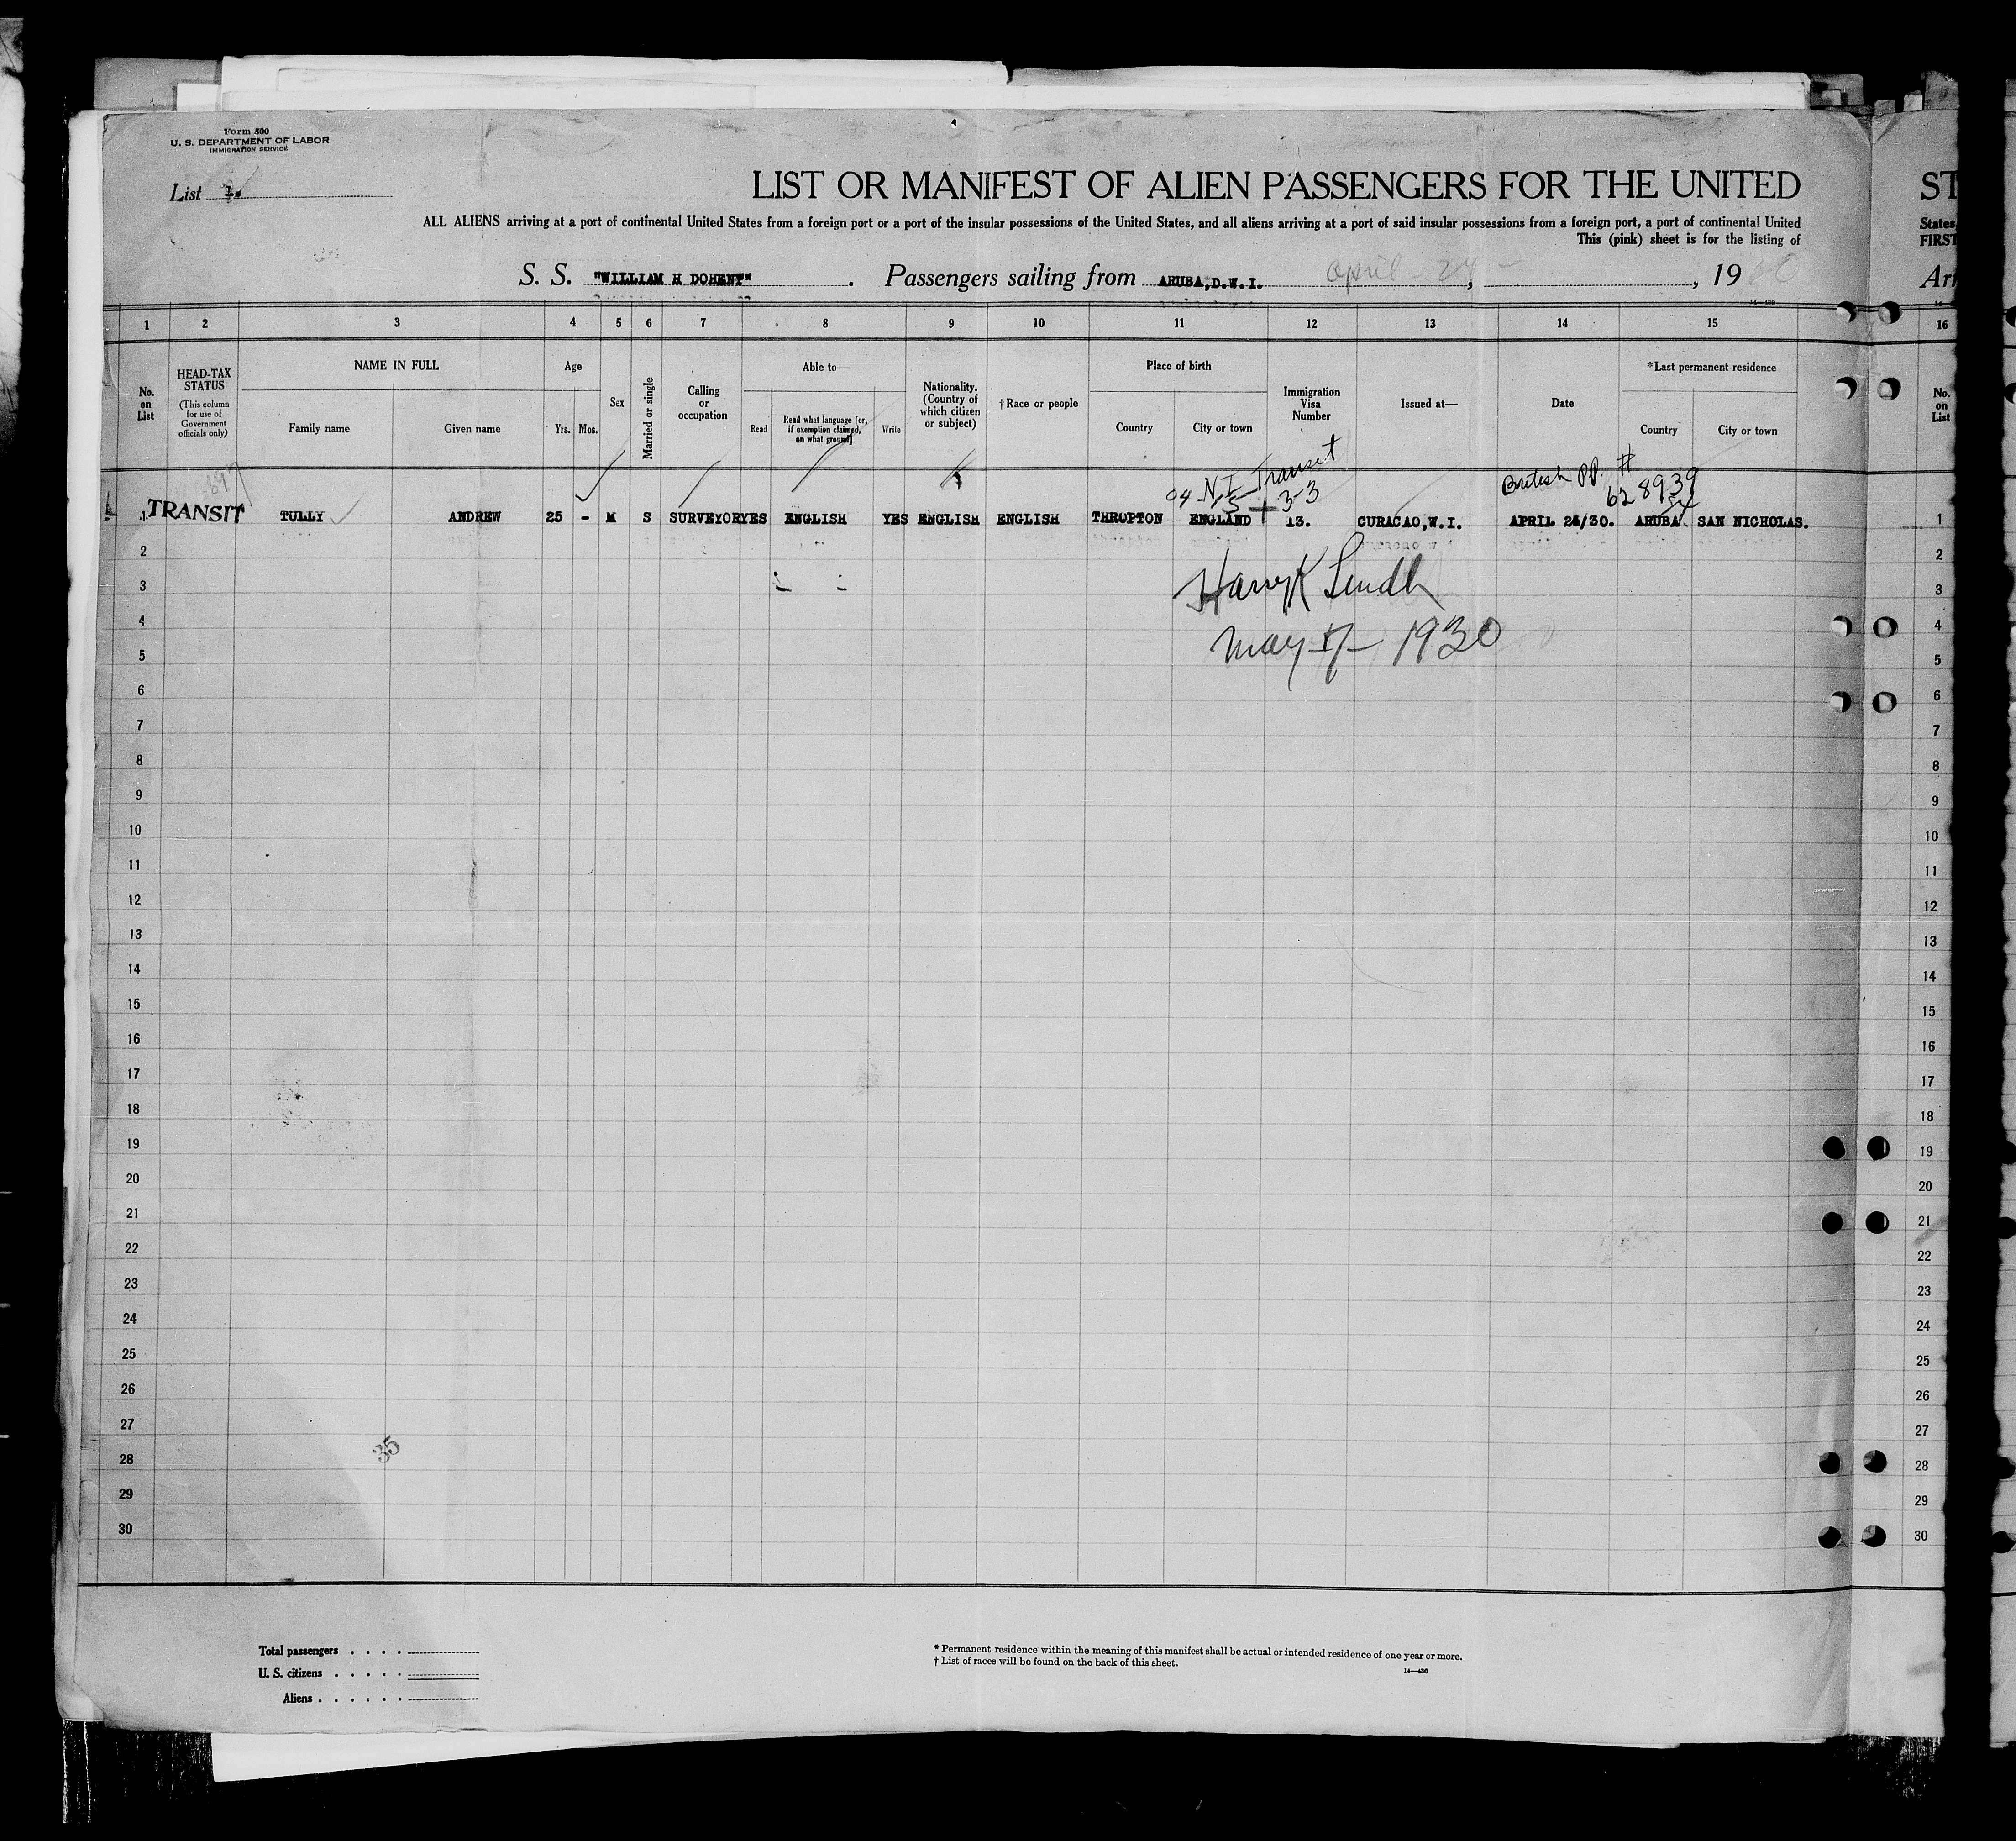 Form 500
U. S. DEPARTMENT OF LABOR
IMMIGRATION SERVICE
List 1.
LIST OR MANIFEST OF ALIEN PASSENGERS FOR THE UNITED
ST
ALL ALIENS arriving at a port of continental United States from a foreign port or a port of the insular possessions of the United States, and all aliens arriving at a port of said insular possessions from a foreign port, a port of continental United
States,
This (pink) sheet is for the listing of
FIRST
S. S. "WILLIAM H DOHENY". Passengers sailing from ARUBA,D.W.I. April 24, 1930
Arr
1 2 3 4 5 6 7 8 9 10 11 12 13 14 15 16
No. on List
HEAD-TAX STATUS
(This column for use of Government officials only)
NAME IN FULL
Family name
Given name
Age
Yrs. Mos.
Sex
Married or single
Calling or occupation
Able to—
Read
Read what language [or, if exemption claimed, on what ground]
Write
Nationality. (Country of which citizen or subject)
†Race or people
Place of birth
Country
City or town
Immigration Visa Number
Issued at—
Date
*Last permanent residence
Country
City or town
No. on List
04 N.I. Transit
3-3
British PP. #
628939
1 TRANSIT TULLY ANDREW 25 - M S SURVEYOR YES ENGLISH YES ENGLISH ENGLISH THROPTON ENGLAND 13. CURACAO,W.I. APRIL 24/30. ARUBA SAN NICHOLAS. 1
2 2
Harry K
3 3
4 4
May 1930
5 5
6 6
7 7
8 8
9 9
10 10
11 11
12 12
13 13
14 14
15 15
16 16
17 17
18 18
19 19
20 20
21 21
22 22
23 23
24 24
25 25
26 26
27 27
35
28 28
29 29
30 30
Total passengers
U. S. citizens
Aliens
* Permanent residence within the meaning of this manifest shall be actual or intended residence of one year or more.
† List of races will be found on the back of this sheet.
14—430